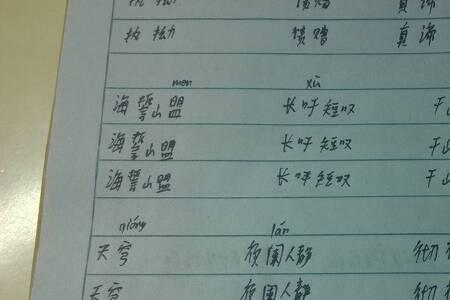 执拗 馈赠 真谛
men xū
海誓山盟 长吁短叹
海誓山盟 长吁短叹
海誓山盟 长吁短叹
qióng lán
天穹 夜阑人静
天穹 夜阑人静